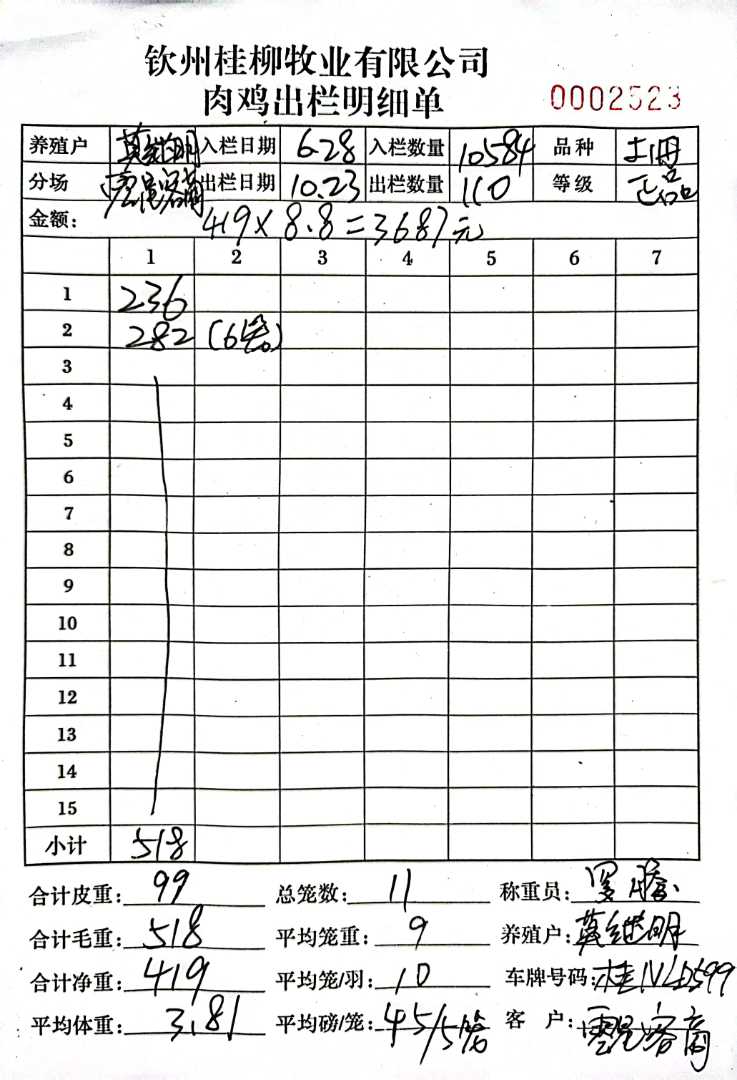 钦州桂柳牧业有限公司
肉鸡出栏明细单
0002523
养殖户 莫继明 入栏日期 6.28 入栏数量 10584 品种 土
分场 客商 出栏日期 10.23 出栏数量 110 等级 正品
金额: 419×8.8=3687元
1 2 3 4 5 6 7
1 236
2 282 (6笼)
3
4
5
6
7
8
9
10
11
12
13
14
15
小计 518
合计皮重: 99 总笼数: 11 称重员: 罗腾
合计毛重: 518 平均笼重: 9 养殖户: 莫继明
合计净重: 419 平均笼/羽: 10 车牌号码: 桂NLD599
平均体重: 3.81 平均磅/笼: 45/5笼 客 户: 客商